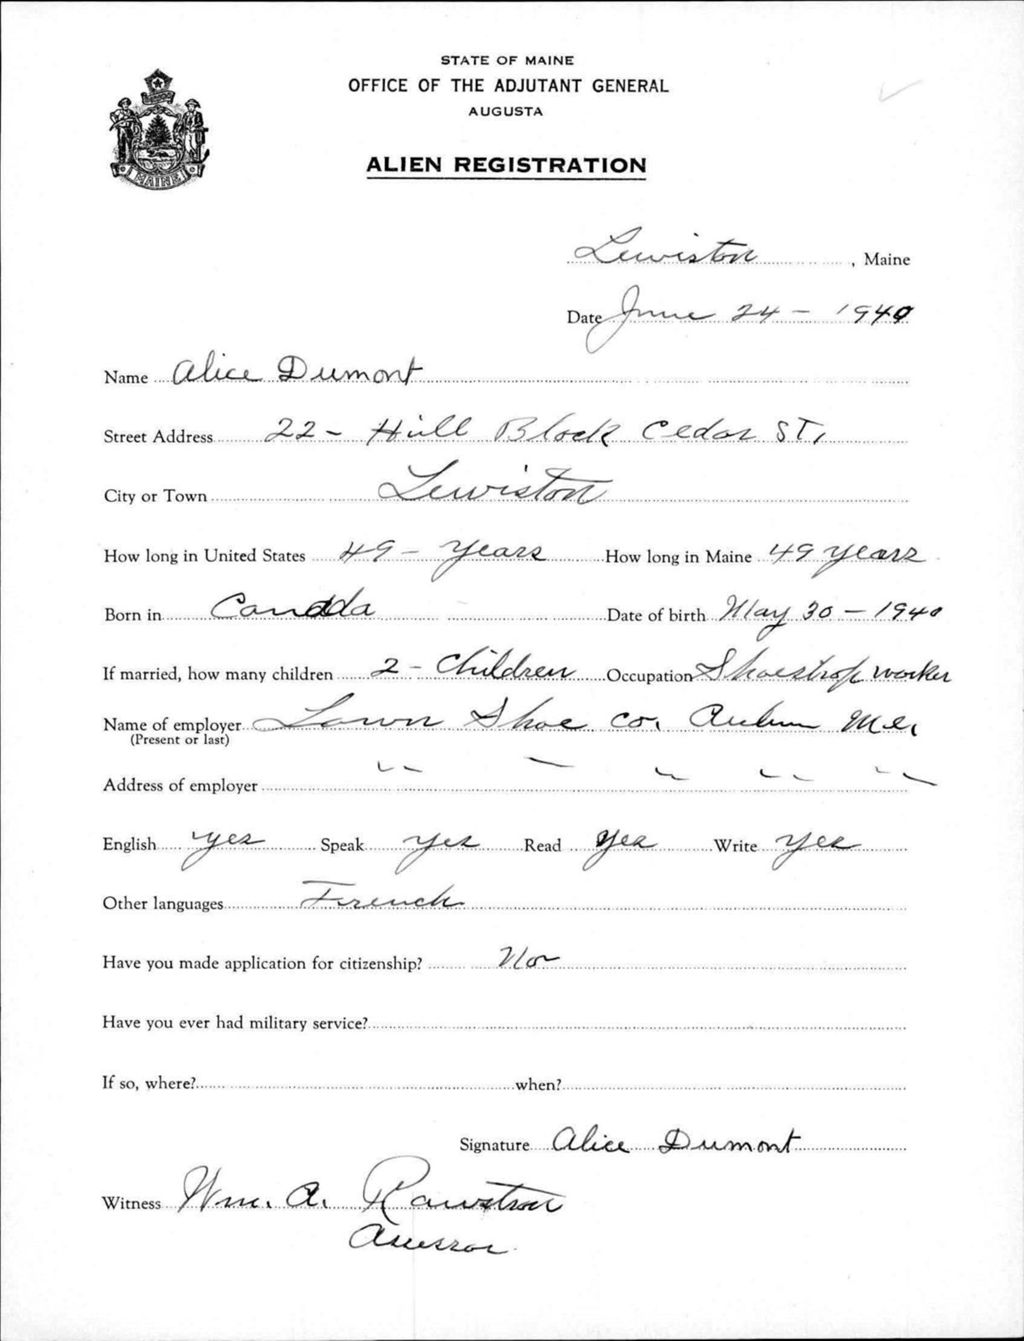 STATE OF MAINE
OFFICE OF THE ADJUTANT GENERAL
AUGUSTA
ALIEN REGISTRATION
MAINE
Lewiston, Maine
Date June 24 - 1940
Name Alice Dumont
Street Address 22 - Hill Block Cedar ST,
City or Town Lewiston
How long in United States 49 - years How long in Maine 49 years
Born in Canada Date of birth May 30 - 1940
If married, how many children 2 - Children Occupation Shoeshop worker
Name of employer Lown Shoe Co, Auburn Me,
(Present or last)
Address of employer " " " " "
English yes Speak yes Read yes Write yes
Other languages French
Have you made application for citizenship? No
Have you ever had military service?
If so, where? when?
Signature Alice Dumont
Witness Wm. A. Rawstron
Assessor